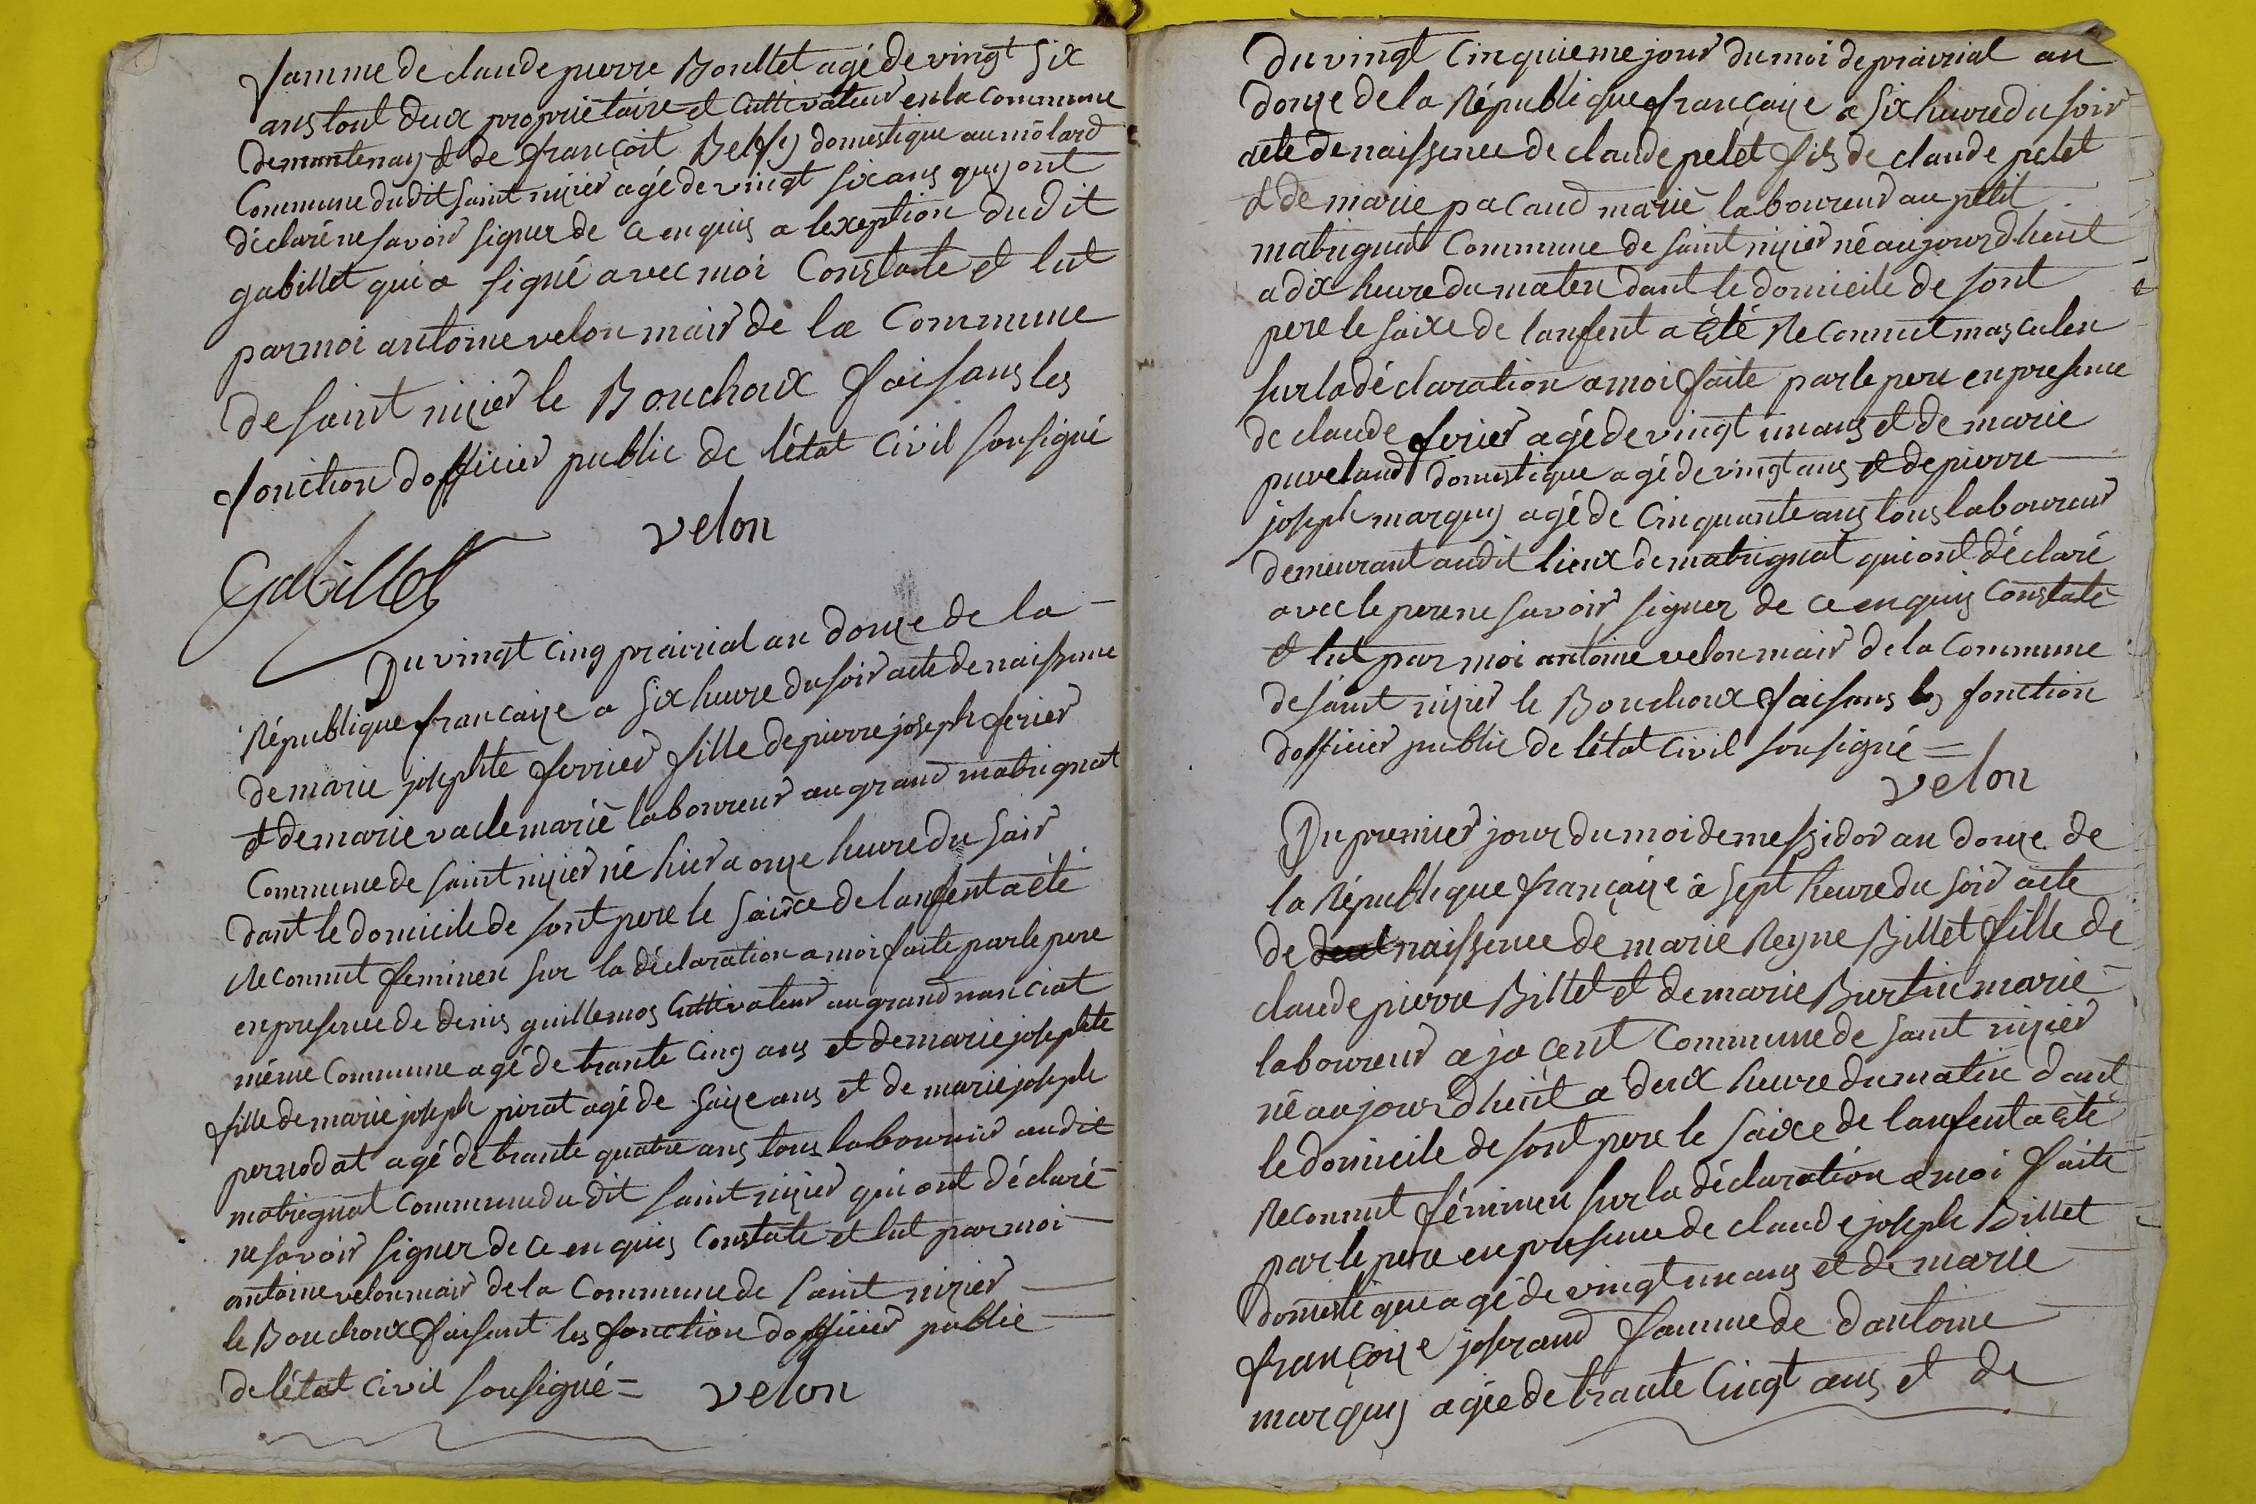 famme de claude pierre Boullet agé de vingt Six
ans tout deux proprietaire et Cultivateur en la commune
de mantenay & de françoit Belfy domestique au mölard
Commune du dit Saint nizier agé de vingt Six ans quy ont
déclaré ne savoir signer de ce enquis a lexeption du dit
gabillet qui a signé avec moi Constate et lut
par moi antoine velon mair de la Commune
de saint nizier le Bouchoux faisans les
fonction dofficier public de létat Civil sousigné
velon
Gabillet
Du vingt Cinq prairial an douze de la
République françaize a Six heure du soir acte de naissence
de marie josephte ferrier fille de pierre joseph ferier
& de marie vacle marié laboureur au grand matrignat
Commune de saint nizier né hier a onze heure du soir
dant le domicile de sont pere le saixe de lanfent a été
Reconnut feminen sur la déclaration a moi faite par le pere
en presence de denis guillemos Cultivateur au grand nanciat
même Commune agé de trante Cinq ans et de marie josephte
fille de marie joseph pirat agé de saize ans et de marie joseph
pernodat agé de trante quatre ans tous laboureur au dit
matrignat Commune du dit saint nizier qui ont déclaré
ne savoir signer de ce en quis Constate et lut par moi
antoine velon mair de la Commune de saint nizier
le Bouchoux faisant les fonction dofficier public
de létat Civil sousigné = velon
Du vingt Cinquieme jour du moi de prairial an
douze de la République françaize a six heure du soir
acte de naissence de claude pelet fils de claude pelet
& de marie pacaud marié laboureur au petit
matrignat Commune de saint nizier né aujourdhuit
a dix heure du maten dant le domicile de sont
pere le saixe de lanfent a été Reconnut masculen
sur la déclaration a moi faite par le pere en presence
de claude ferier agé de vingt un ans et de marie
puveland domestique agé de vingt ans & de pierre
joseph marquy agé de Cinquante ans tous laboureur
demeurant audit lieux de matrignat qui ont déclaré
avec le pere ne savoir signer de ce en quis Constate
& lut par moi antoine velon mair de la Commune
de saint nizier le Bouchoux faisans les fonction
dofficier public de létat Civil sousigné =
velon
Du premier jour du moi de messidor an douze de
la République françaize a sept heure du soir acte
de naissence de marie Reyne Billet fille de
claude pierre Billet et de marie Burtin marié
laboureur a jacent Commune de saint nizier
né aujourdhuit a deux heure du matin dant
le domicile de sont pere le saixe de lanfent a été
Reconnut féminen sur la déclaration a moi faite
par le pere en presence de claude joseph Billet
domestique agé de vingt un ans et de marie
françoize joserand famme de dantoine
marquy agée de trante Cingt ans et de